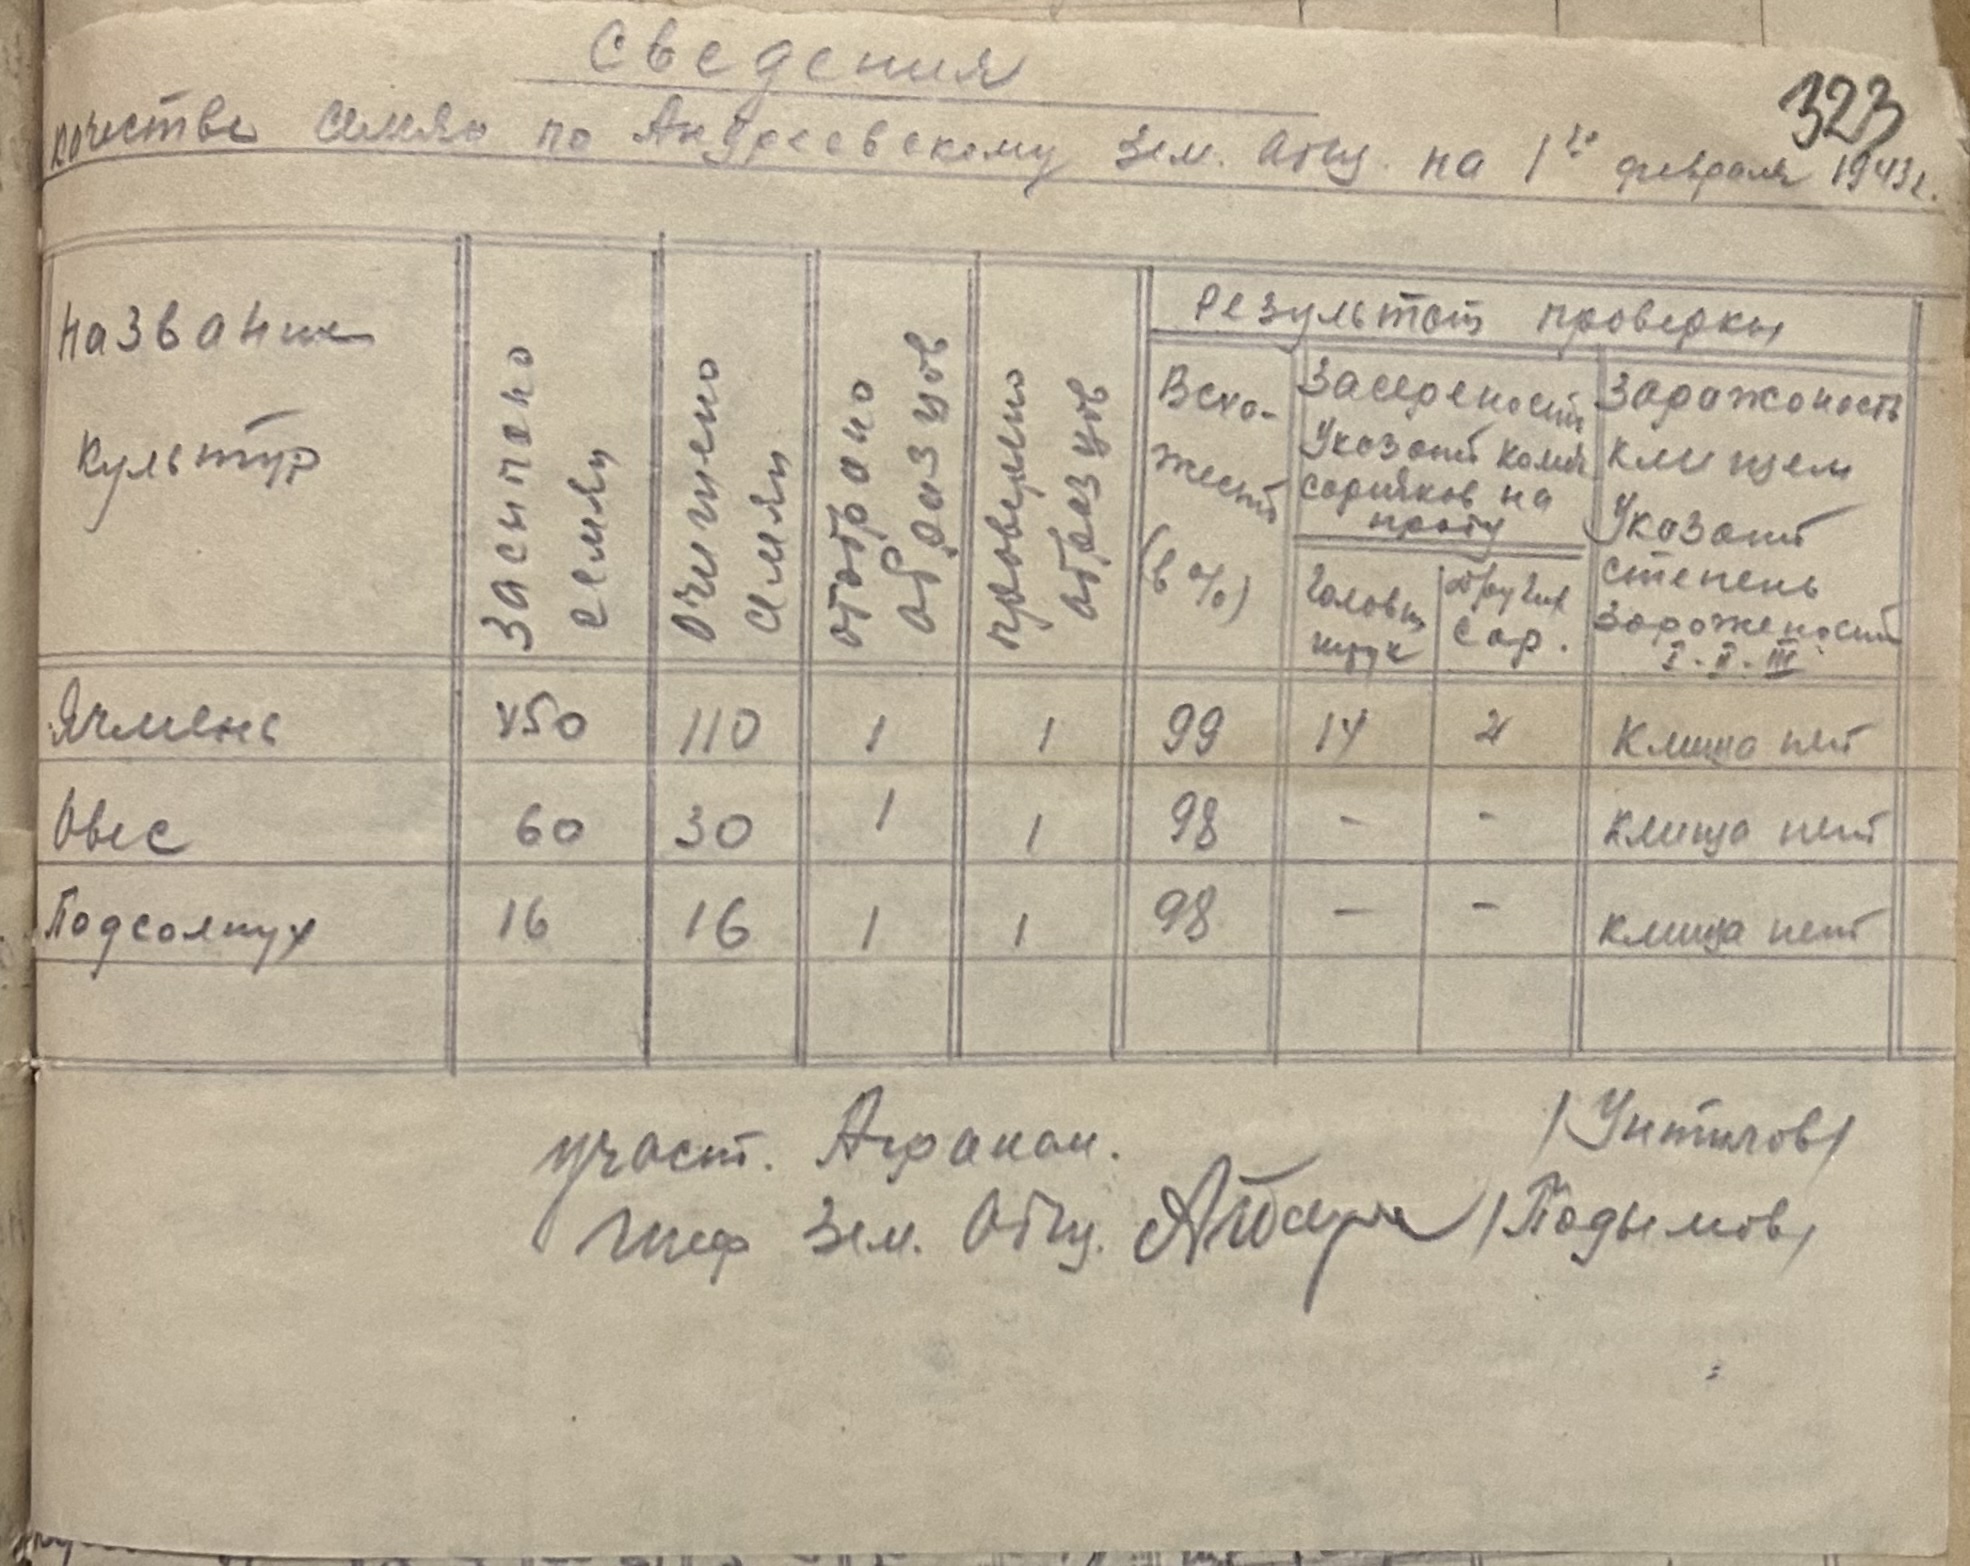 Сведения
323
качестве семян по Андреевскому Зем. Общ. на 1го февраля 1943г.
Название культур
Засыпано семян
Очищено семян
отобрано образцов
проверено образцов
Результат проверки
Всхо-
жесть
(в %)
Засореность
Указать колич
сорняков на
пробу
Головн
штук
других
сор.
Заражоность
клищем
Указать
степень
зараженасти
I. II. III
Ячмень 150 110 1 1 99 14 2 Клища нет
Овес 60 30 1 1 98 - - клища нет
Подсолнух 16 16 1 1 98 - - клища нет
участ. Агроном. /Унтилов/
Шеф Зем. Общ. /Подымов/